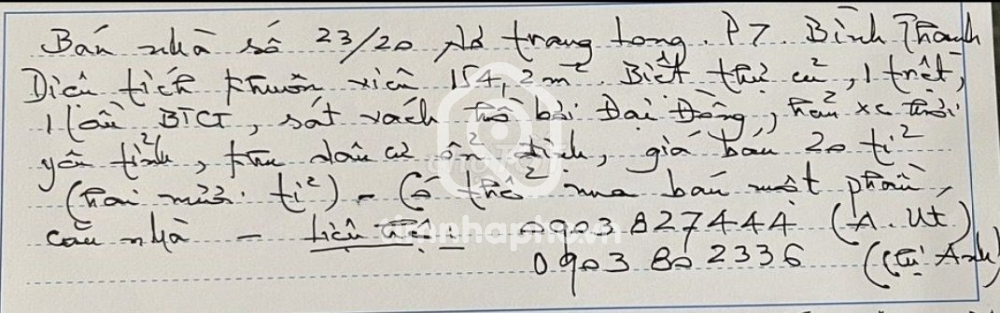 Bán nhà số 23/20 Nơ trang Long. P7. Bình Thạnh
Diện tích khuôn viên 154,2m². Biệt thự cũ, 1 trệt,
1 lầu BTCT, sát vách hồ bơi Đại Đồng, hẻm xe hơi
yên tỉnh, khu dân cư ổn định, giá bán 20 tỉ
(hai mươi tỉ) - Có thể mua bán một phần
căn nhà - Liên hệ: 0903 827444 (A. Út)
0903 802336 (Chị Anh)
timnhapho.vn